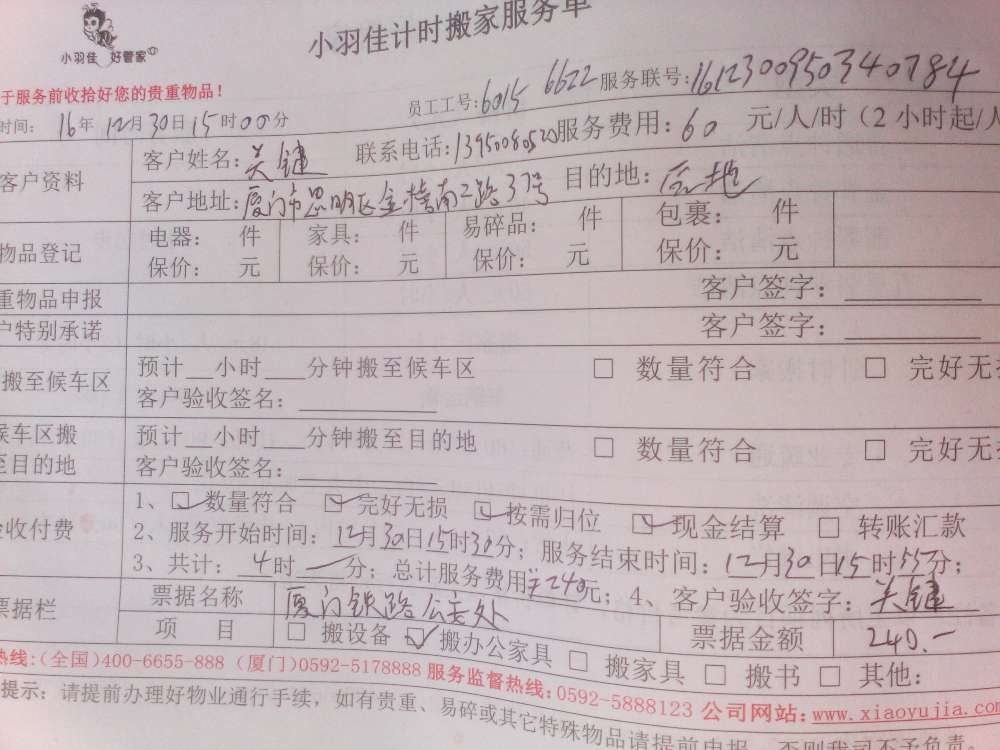 小羽佳计时搬家服务单
小羽佳 好管家
于服务前收拾好您的贵重物品！
员工工号:6015 6622 服务联号:1612300950340784
时间: 16年12月30日15时00分
客户资料
客户姓名:关键 联系电话:13950080520 服务费用:60 元/人/时（2小时起/人
客户地址:厦门市思明区金桔南二路37号 目的地:
物品登记
电器: 件 家具: 件 易碎品: 件 包裹: 件
保价: 元 保价: 元 保价: 元 保价: 元
重物品申报 客户签字:
户特别承诺 客户签字:
搬至候车区
预计__小时___分钟搬至候车区 □ 数量符合 □ 完好无
客户验收签名:
候车区搬
至目的地
预计__小时___分钟搬至目的地 □ 数量符合 □ 完好无
客户验收签名:
验收付费
1、☑数量符合 ☑完好无损 ☑按需归位 ☑现金结算 □ 转账汇款
2、服务开始时间:12月30日15时30分；服务结束时间:12月30日15时55分；
3、共计:4时一分；总计服务费用¥240元；4、客户验收签字:关键
票据栏
票据名称 厦门铁路公安处
项 目 □搬设备 ☑搬办公家具 □ 搬家具 □ 搬书 □ 其他:
票据金额 240.-
热线:(全国)400-6655-888 (厦门)0592-5178888 服务监督热线:0592-5888123 公司网站:www.xiaoyujia.com
提示: 请提前办理好物业通行手续，如有贵重、易碎或其它特殊物品请提前申报，否则我司不予负责。